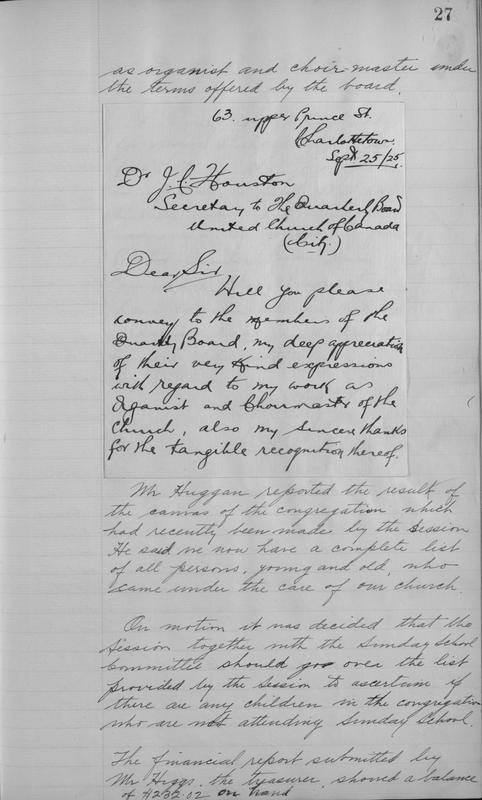 27
as organist and choir-master under
the terms offered by the board.
63. upper Prince St.
Charlottetown.
Sept 25/25.
Dr J. C. Houston
Secretary to The Quarterly Board
United Church of Canada
(City.)
Dear Sir
Will you please
convey to the members of the
Quartly Board, my deep appreciation
of their very kind expressions
with regard to my work as
Organist and Choirmaster of the
Church, also my sincere thanks
for the tangible recognition thereof.
Mr Huggan reported the result of
the canvas of the congregation which
had recently been made by the Session
He said we now have a complete list
of all persons, young and old, who
came under the care of our church.
On motion it was decided that the
Session together with the Sunday School
Committee should go over the list
provided by the Session to ascertain if
there are any children in the congregation
who are not attending Sunday School.
The financial report submitted by
Mr Higgs, the treasurer, showed a balance
of $232.02 on hand